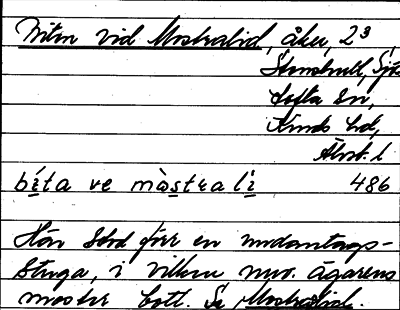 Biten vid Mostralid, åker, 2³
Stenshult, Sjö
Tofta sn,
Kinds hd,
Älvsb. l
bíta ve mòstrali 486
Här stod förr en undantags-
stuga, i vilken nuv. ägarens
moster bott. Se Mostralid.